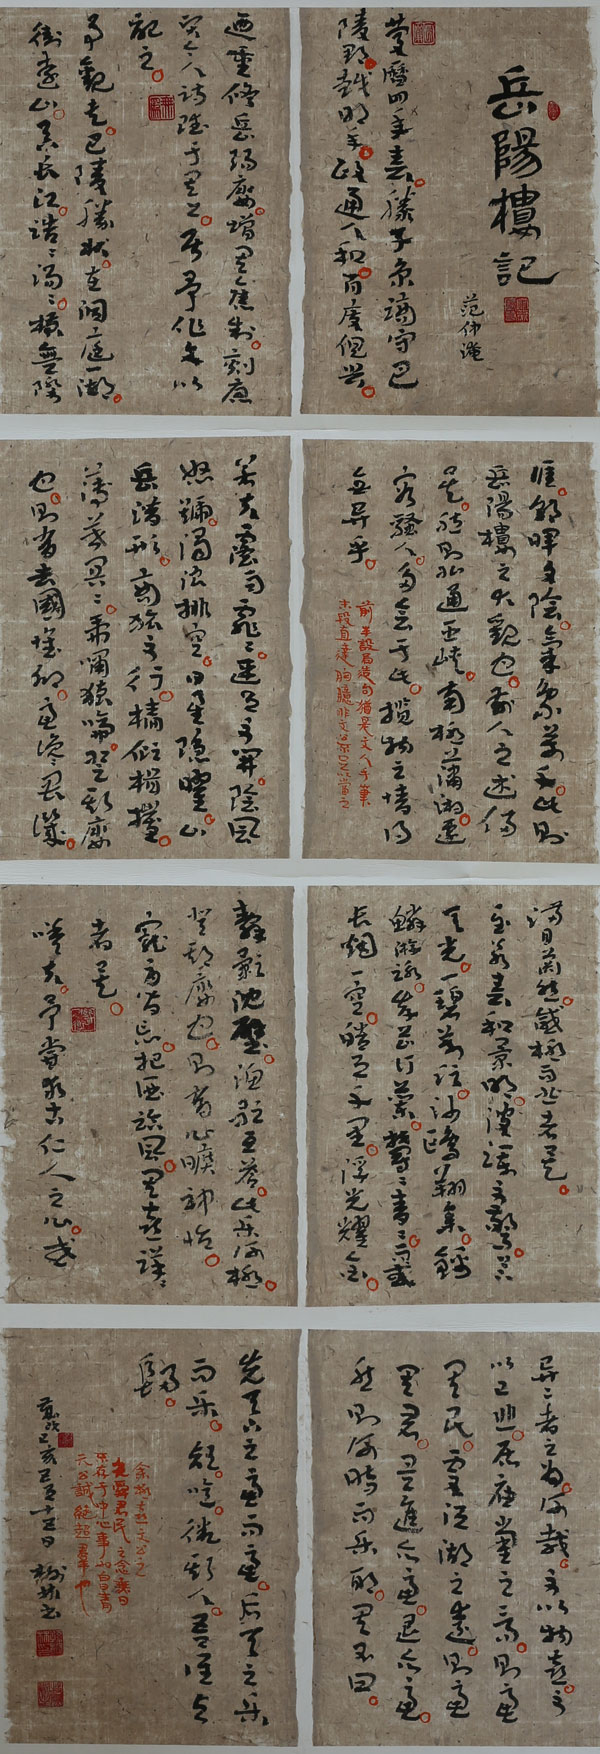 岳陽樓記
范仲淹
慶曆四年春滕子京謫守巴
陵郡越明年政通人和百廢俱興
迺重修岳陽樓增其舊制刻唐
賢今人詩賦于其上屬予作文以
記之
予觀夫巴陵勝狀在洞庭一湖
銜遠山吞長江浩浩湯湯橫無際
涯朝暉夕陰氣象萬千此則
岳陽樓之大觀也前人之述備
矣然則北通巫峽南極瀟湘遷
客騷人多會于此攬物之情得
無異乎
前半設局造句猶是文人手筆
末段直達胸臆非文公不足以當之
若夫霪雨霏霏連月不開陰風
怒號濁浪排空日星隱曜山
岳潛形商旅不行檣傾楫摧
薄暮冥冥虎嘯猿啼登斯樓
也則有去國懷鄉憂讒畏譏
滿目蕭然感極而悲者矣
至若春和景明波瀾不驚上下
天光一碧萬頃沙鷗翔集錦
鱗游泳岸芷汀蘭鬱鬱青青而或
長煙一空皓月千里浮光耀金
靜影沈璧漁歌互答此樂何極
登斯樓也則有心曠神怡
寵辱皆忘把酒臨風其喜洋洋
者矣
嗟夫予嘗求古仁人之心或
異二者之為何哉不以物喜不
以己悲居廟堂之高則憂
其民處江湖之遠則憂
其君是進亦憂退亦憂
然則何時而樂耶其必曰
先天下之憂而憂后天下之樂
而樂歟噫微斯人吾誰與
歸
堯舜君民之念
存于中心事如白日青
天公誠絕超君平也
歲次己亥五月十五日